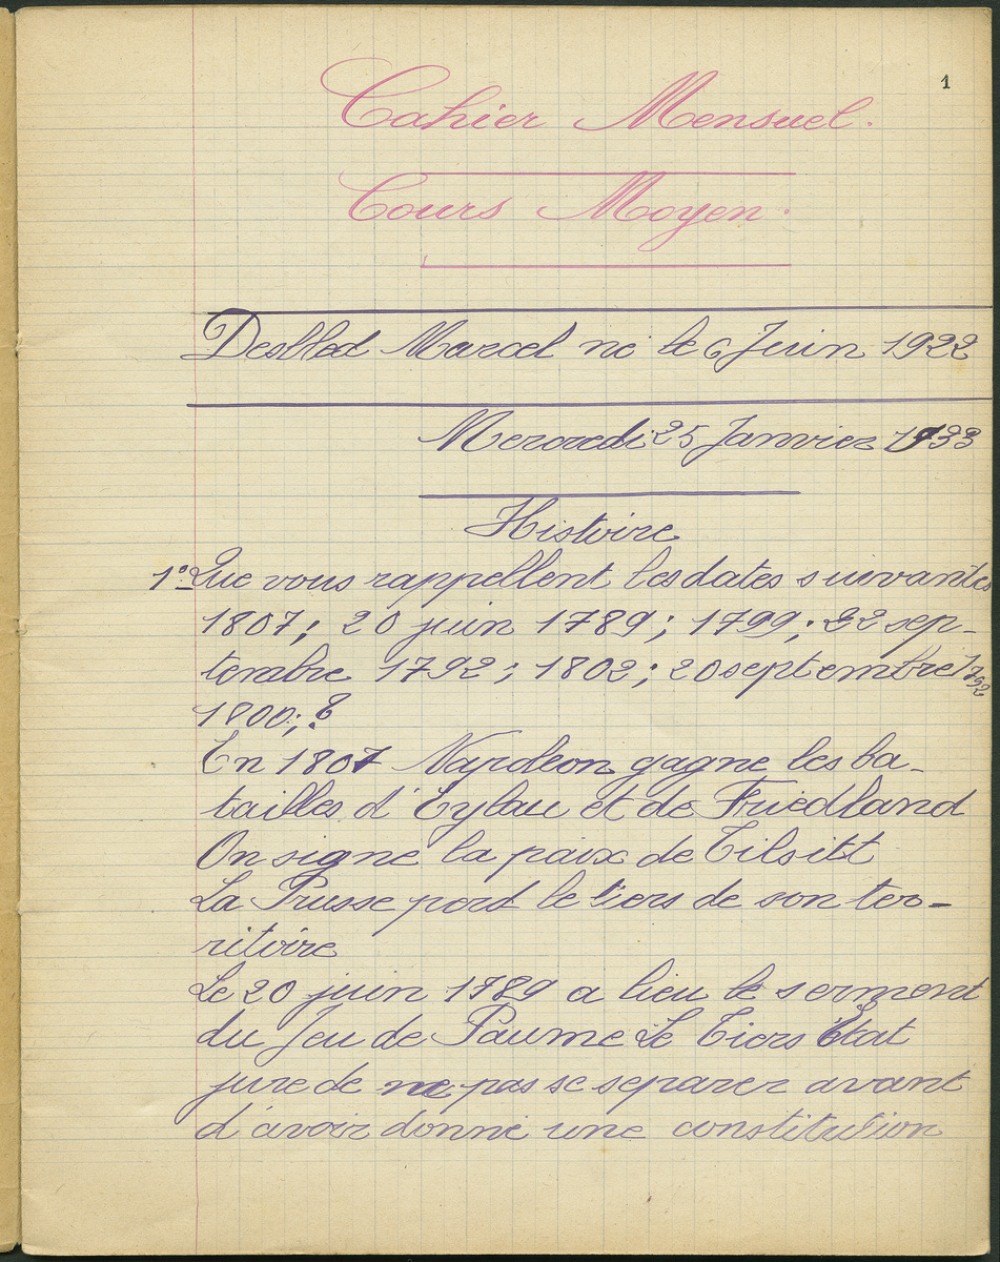 1
Cahier Mensuel.
Cours Moyen.
Marcel né le 6 Juin 1922
Mercredi 25 Janvier 1933
Histoire
1° Que vous rappellent les dates suivantes
1807; 20 juin 1789; 1799; 22 sep-
tembre 1792; 1802; 20 septembre 1792
1800; ?
En 1807 Napoléon gagne les ba-
tailles d'Eylau et de Friedland
On signe la paix de Tilsitt
La Prusse perd le tiers de son ter-
ritoire
Le 20 juin 1789 a lieu le serment
du Jeu de Paume Le Tiers État
jure de ne pas se separer avant
d'avoir donné une constitution